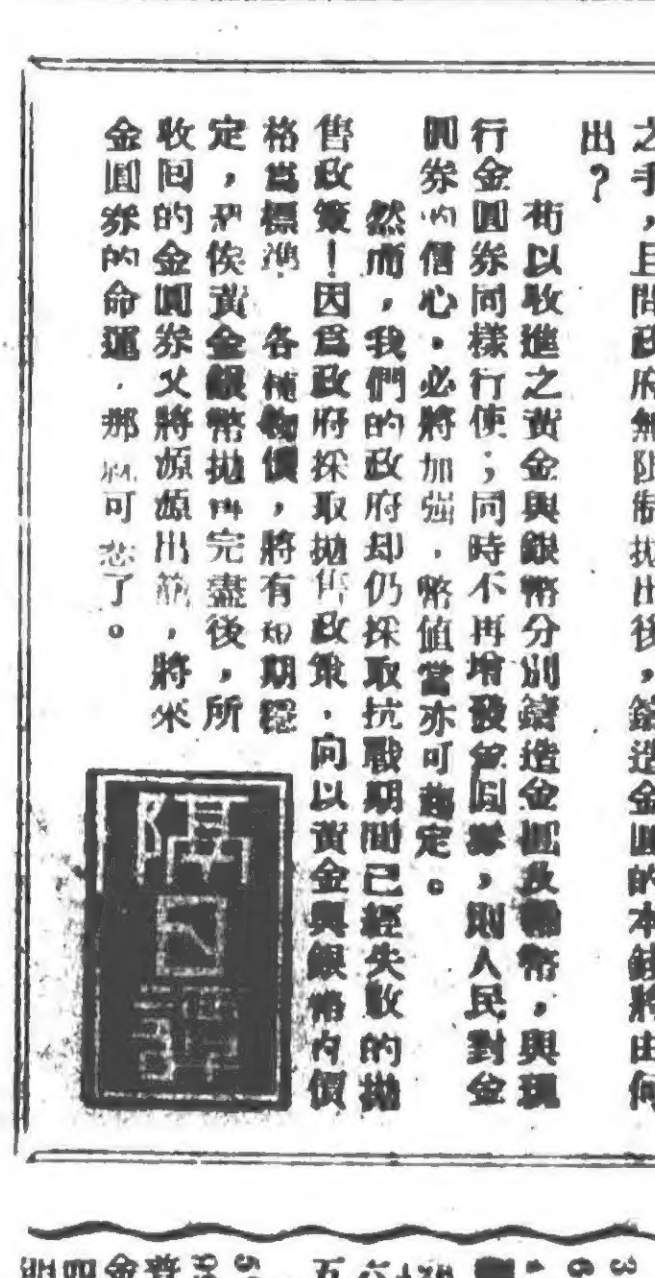 之手，且問政府無限制拋出後，鑄造金圓的本錢將由何
出？
苟以收進之黃金與銀幣分別鑄造金圓及輔幣，與現
行金圓券同樣行使；同時不再增發金圓券，則人民對金
圓券的信心，必將加强，幣值當亦可趨定。
然而，我們的政府却仍採取抗戰期間已經失敗的拋
售政策！因爲政府採取拋售政策，向以黃金與銀幣的價
格爲標準　各種物價，將有短期穩
定，料俟黃金銀幣拋售完盡後，所
收回的金圓券又將源源出籠，將來
金圓券的命運，那就可悲了。
隔日評